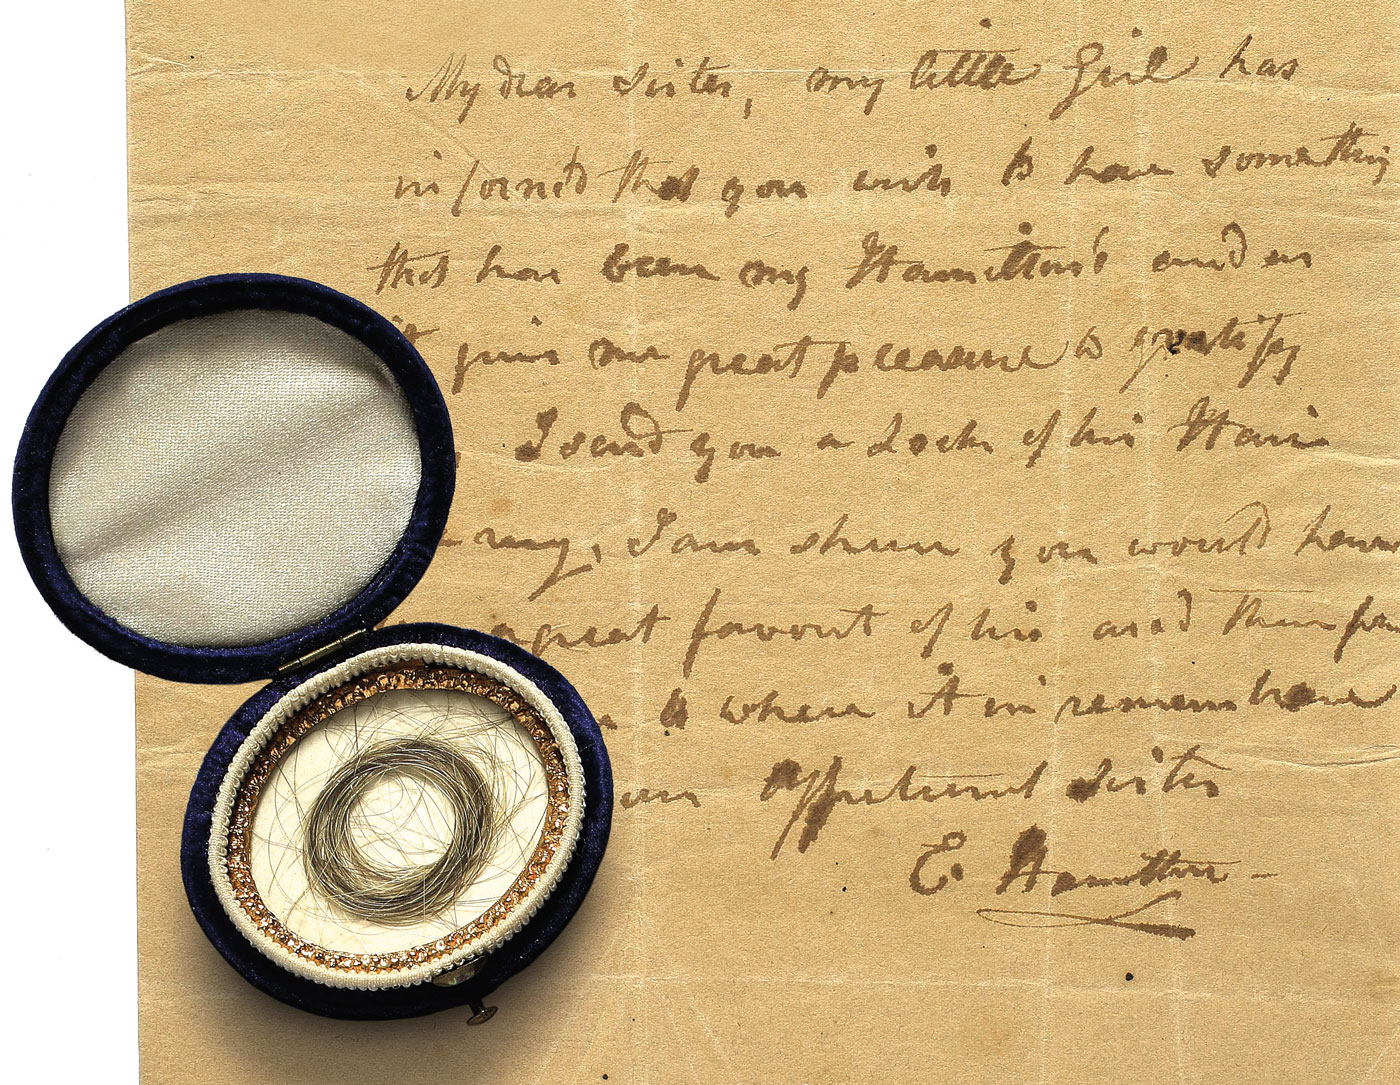 My dear Sister, my little Girl has
inform'd that you wish to have something
that has been my Hamiltons and as
it gives me great pleasure to gratify
I send you a Lock of his Hair
I am shure you would have
great favorit of his and
to where it in remembrance
Sister
E. Hamilton